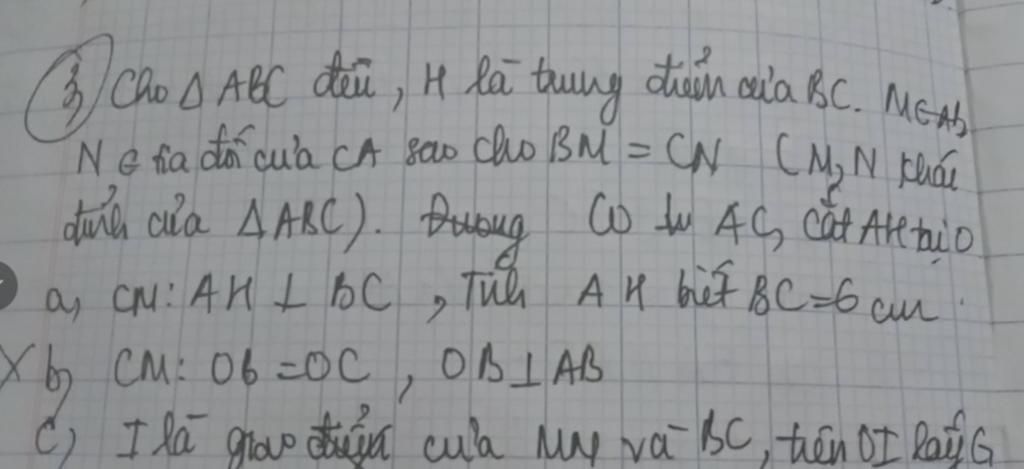 3, Cho Δ ABC đều, H là trung điểm của BC. M∈AB,
N ∈ tia đối của CA sao cho BM = CN (M, N khác
đỉnh của ΔABC). Đường ⊥ AC, cắt AH tại O
a, CM: AH ⊥ BC, Tính AH biết BC=6 cm.
b, CM: OB=OC, OB⊥AB
c) I là giao điểm của MN và BC, trên OI lấy G